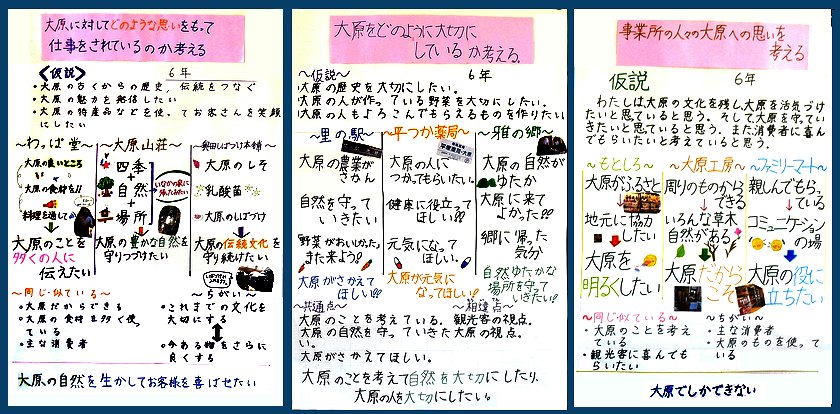 大原に対してどのような思いをもって
仕事をされているのか考える
〈仮説〉 6年
・大原の古くからの歴史、伝統をつなぐ
・大原の魅力を発信したい
・大原の特産品などを使ってお客さんを笑顔
にしたい
〜わっぱ堂〜
大原の良いところ
大原の食材を!!
料理を通して
大原のことを
多くの人に
伝えたい
〜大原山荘〜
四季
+
自然
+
場所
大原の豊かな自然を
守りつづけたい
大原のしそ
乳酸菌
大原のしばづけ
大原の伝統文化を
守り続けたい
〜同じ・似ている〜
・大原だからできる
・大原の食材を多く使っ
ている
・主な消費者
〜ちがい〜
・これまでの文化を
大切にする
・今ある物をさらに
良くする
大原の自然を生かしてお客様を喜ばせたい
大原をどのように大切に
しているか考える。
〜仮説〜 6年
・大原の歴史を大切にしたい。
・大原の人が作っている野菜を大切にしたい。
・大原の人もよろこんでもらえるものを作りたい
〜里の駅〜
大原の農業が
さかん
自然を守って
いきたい
「野菜がおいしかった。
また来よう!」
大原がさかえて
ほしい!!
〜平つか薬局〜
大原の人に
つかってもらいたい。
健康に役立って
ほしい!!
元気になって
ほしい。
大原が元気に
なってほしい!
〜雅の郷〜
大原の自然が
ゆたか
大原に来て
よかった!!
郷に帰った
気分
自然ゆたかな
場所を守って
いきたい!
〜共通点〜 〜相違点〜
大原のことを考えている。観光客の視点。
大原の自然を守っていきた大原の視点。
い。
大原がさかえてほしい。
大原のことを考えて自然を大切にしたり、
大原の人を大切にしたい。
事業所の人々の大原への思いを
考える
仮説 6年
わたしは大原の文化を残し大原を活気づけ
たいと思っていると思う。そして大原を守ってい
きたいと思っていると思う。また消費者に喜ん
でもらいたいと考えていると思う。
〜もとしろ〜
大原がふるさと
地元に協力
したい
大原を
明るくしたい
〜大原工房〜
周りのものから
できる
いろんな草木
自然がある
大原だから
こそ
〜ファミリーマート〜
親しんでもらっ
ている
コミュニケーション
の場
大原の役に
立ちたい
〜同じ・似ている〜
・大原のことを考え
ている
・観光客に喜んでも
らいたい
〜ちがい〜
・主な消費者
・大原のものを使って
いる
大原でしかできない